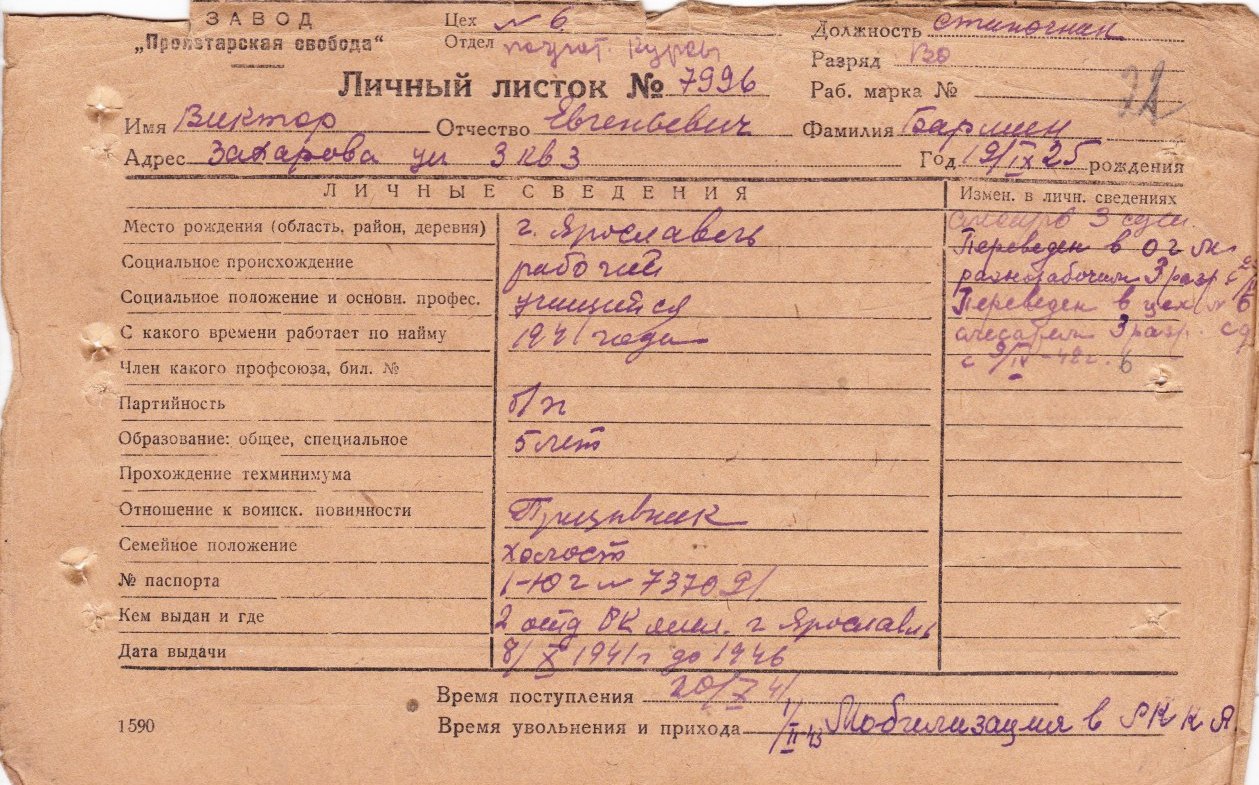 ЗАВОД
„Пролетарская свобода“
Цех № 6
Отдел курсы
Должность
Разряд
Раб. марка №
Личный листок № 7996
Имя Виктор Отчество Евгеньевич Фамилия Бармин
Адрес Захарова ул 3 кв 3 Год 19/IX 25 рождения
ЛИЧНЫЕ СВЕДЕНИЯ
Измен. в личн. сведениях
Место рождения (область, район, деревня) г. Ярославль
3
Социальное происхождение рабочий
Переведен в
разнорабочим 3 разр с
Социальное положение и основн. профес. учащийся
Переведен в цех № 6
С какого времени работает по найму 1941 года
3 разр.
с 9/IV-42г.
Член какого профсоюза, бил. №
Партийность б/п
Образование: общее, специальное 5 лет
Прохождение техминимума
Отношение к воинск. повинности Призывник
Семейное положение холост
№ паспорта № 737091
Кем выдан и где 2 отд РК мил. г Ярославль
Дата выдачи 8/X 1941г до 1946
Время поступления 20/X 41
1590
Время увольнения и прихода 1/II 43 Мобилизация в РККА